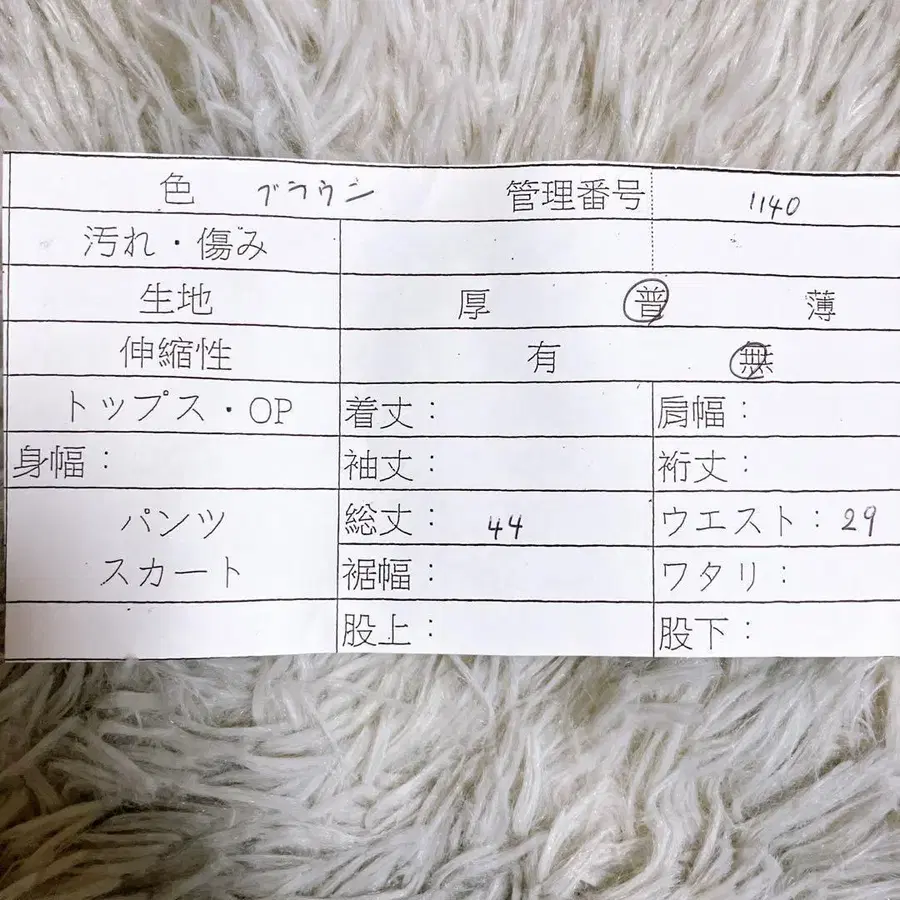 色 ブラウン 管理番号 1140
汚れ・傷み
生地 厚 普 薄
伸縮性 有 無
トップス・OP 着丈： 肩幅：
身幅： 袖丈： 裄丈：
パンツ 総丈： 44 ウエスト： 29
スカート 裾幅： ワタリ：
股上： 股下：